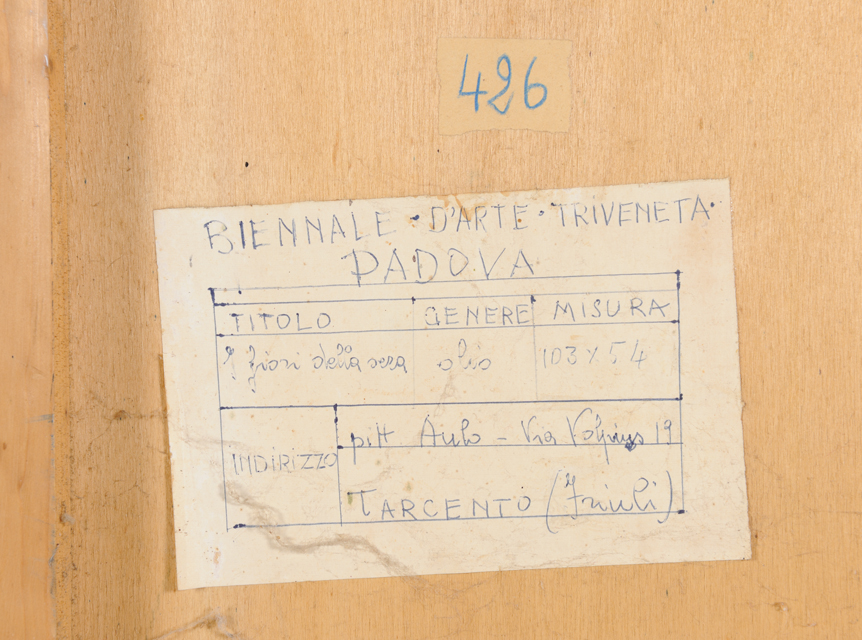 426
BIENNALE · D'ARTE · TRIVENETA·
PADOVA
TITOLO GENERE MISURA
I fiori della sera olio 103 x 54
INDIRIZZO
pitt Aulo - Via 19
TARCENTO (Friuli)